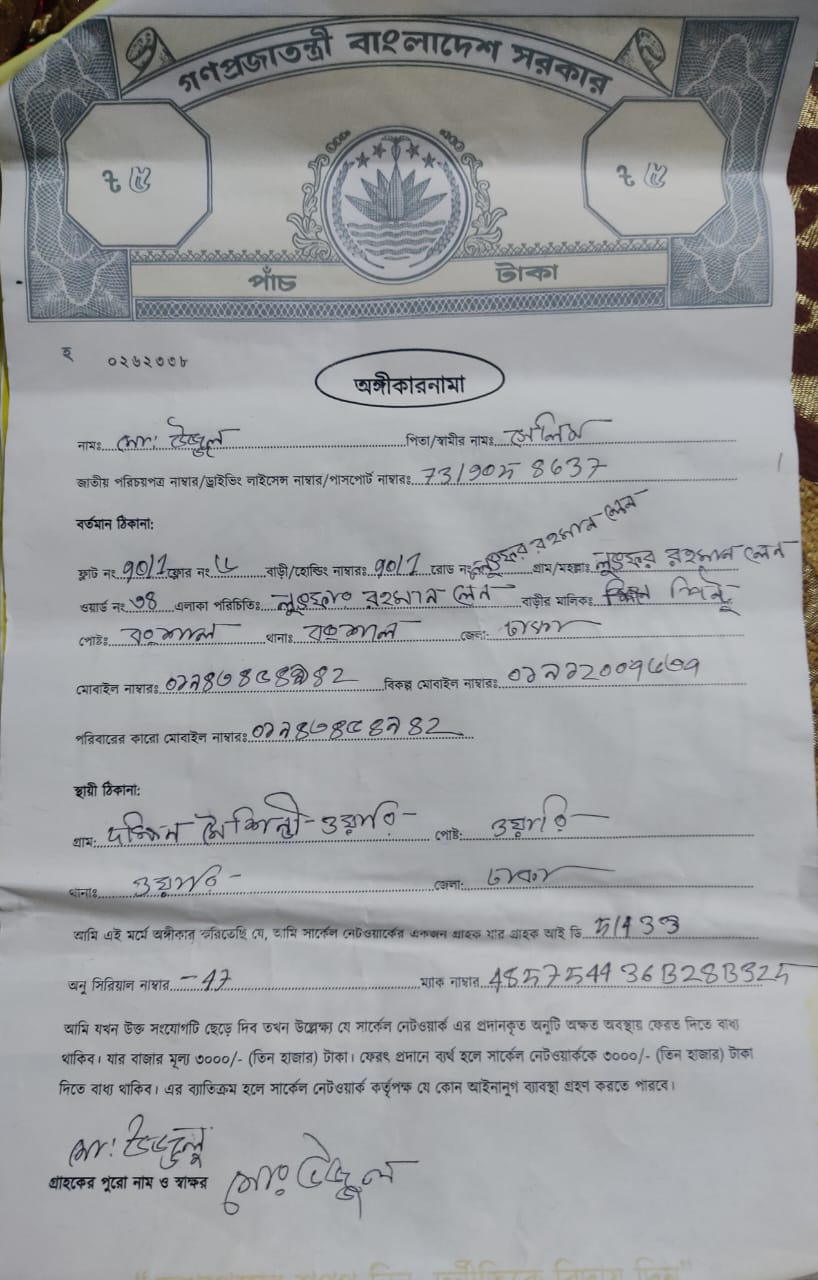 গণপ্রজাতন্ত্রী বাংলাদেশ সরকার
৳ ৫ ৳ ৫
পাঁচ টাকা
হ ০২৬২৩৩৮
অঙ্গীকারনামা
নামঃ মো: উজ্জল পিতা/স্বামীর নামঃ সেলিম
জাতীয় পরিচয়পত্র নাম্বার/ড্রাইভিং লাইসেন্স নাম্বার/পাসপোর্ট নাম্বারঃ
বর্তমান ঠিকানা:
ফ্লাট নং 90/1 ফ্লোর নং ৫ বাড়ী/হোল্ডিং নাম্বারঃ 90/1 রোড নং লুৎফর রহমান লেন গ্রাম/মহল্লাঃ লুৎফর রহমান লেন
ওয়ার্ড নং ৩৪ এলাকা পরিচিতিঃ লুৎফর রহমান লেন বাড়ীর মালিকঃ পিন্টু
পোষ্টঃ বংশাল থানাঃ বংশাল জেলা: ঢাকা
মোবাইল নাম্বারঃ বিকল্প মোবাইল নাম্বারঃ
পরিবারের কারো মোবাইল নাম্বারঃ
স্থায়ী ঠিকানা:
গ্রাম: দক্ষিন মৈশন্ডী - ওয়ারি - পোষ্ট: ওয়ারি
থানাঃ ওয়ারি - জেলা: ঢাকা
আমি এই মর্মে অঙ্গীকার করিতেছি যে, আমি সার্কেল নেটওয়ার্কের একজন গ্রাহক যার গ্রাহক আই ডি
অনু সিরিয়াল নাম্বার - 47 ম্যাক নাম্বার
আমি যখন উক্ত সংযোগটি ছেড়ে দিব তখন উল্লেক্ষ্য যে সার্কেল নেটওয়ার্ক এর প্রদানকৃত অনুটি অক্ষত অবস্থায় ফেরত দিতে বাধ্য
থাকিব। যার বাজার মূল্য ৩০০০/- (তিন হাজার) টাকা। ফেরৎ প্রদানে ব্যর্থ হলে সার্কেল নেটওয়ার্ককে ৩০০০/- (তিন হাজার) টাকা
দিতে বাধ্য থাকিব। এর ব্যতিক্রম হলে সার্কেল নেটওয়ার্ক কর্তৃপক্ষ যে কোন আইনানুগ ব্যবস্থা গ্রহণ করতে পারবে।
মো: উজ্জল
গ্রাহকের পুরো নাম ও স্বাক্ষর মোঃ উজ্জল